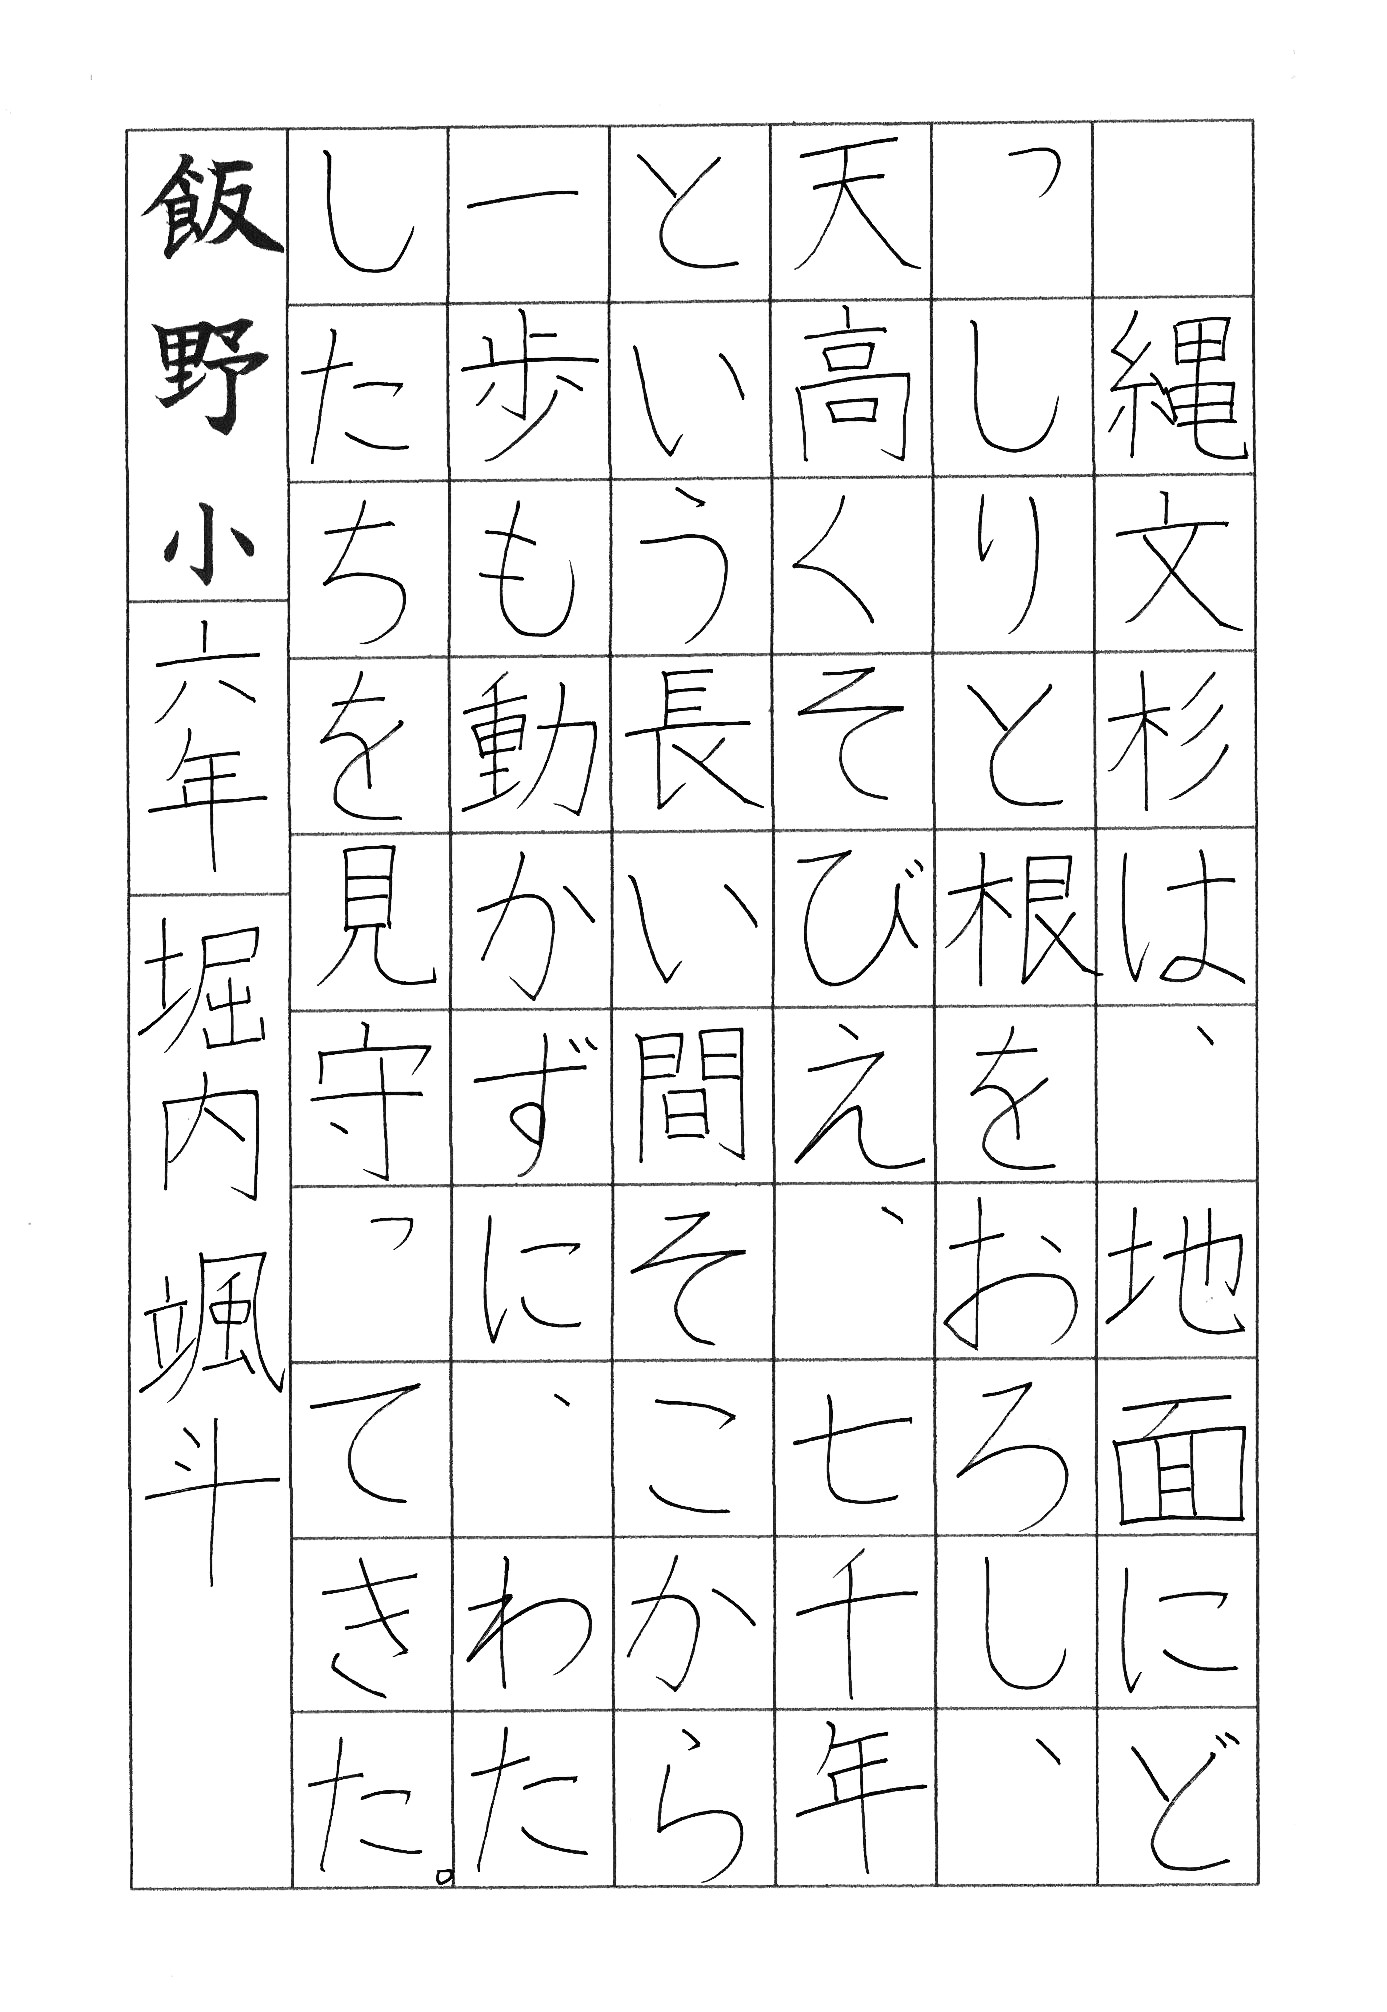 縄文杉は、地面にど
っしりと根をおろし、
天高くそびえ、七千年
という長い間そこから
一歩も動かずに、わた
したちを見守ってきた。
飯野小六年堀内颯斗